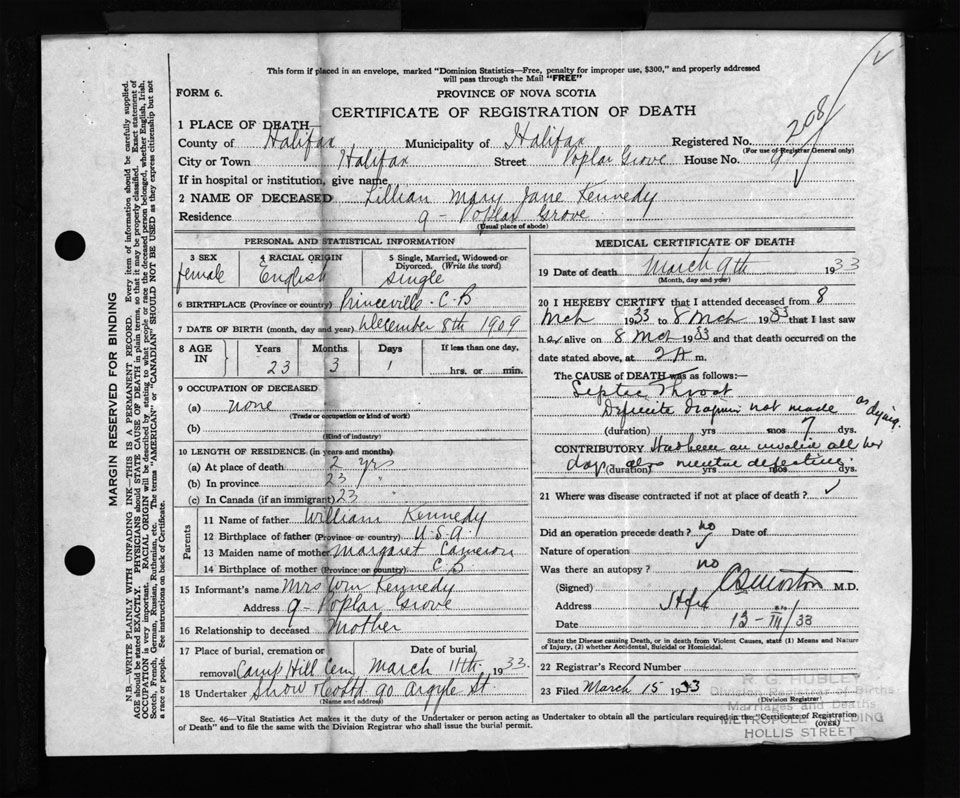 This form if placed in an envelope, marked "Dominion Statistics—Free, penalty for improper use, $300," and properly addressed
will pass through the Mail "FREE"
FORM 6.
PROVINCE OF NOVA SCOTIA
CERTIFICATE OF REGISTRATION OF DEATH
208
1 PLACE OF DEATH—
County of Halifax Municipality of Halifax Registered No.
(For use of Registrar General only)
City or Town Halifax Street Poplar Grove House No. 9
If in hospital or institution, give name
2 NAME OF DECEASED Lillian Mary Jane Kennedy
Residence 9 - Poplar Grove
(Usual place of abode)
PERSONAL AND STATISTICAL INFORMATION
3 SEX female
4 RACIAL ORIGIN English
5 Single, Married, Widowed or
Divorced. (Write the word)
Single
6 BIRTHPLACE (Province or country) Princeville - C. B
7 DATE OF BIRTH (month, day and year) December 8th 1909
8 AGE IN Years Months Days If less than one day,
23 3 1 hrs. or min.
9 OCCUPATION OF DECEASED
(a) none
(Trade or occupation or kind of work)
(b)
(Kind of industry)
10 LENGTH OF RESIDENCE (in years and months)
(a) At place of death 2 yrs
(b) In province 23 "
(c) In Canada (if an immigrant) 23
Parents
11 Name of father William Kennedy
12 Birthplace of father (Province or country) U.S.A.
13 Maiden name of mother Margaret Cameron
14 Birthplace of mother (Province or country) C. B
15 Informant's name Mrs Wm Kennedy
Address 9 - Poplar Grove
16 Relationship to deceased Mother
17 Place of burial, cremation or Date of burial
removal Camp Hill Cem March 11th 1933.
18 Undertaker Snow & Co Ltd 90 Argyle St.
(Name and address)
MEDICAL CERTIFICATE OF DEATH
19 Date of death March 9th 1933
(Month, day and year)
20 I HEREBY CERTIFY that I attended deceased from 8
Mch 1933 to 8 Mch 1933 that I last saw
her alive on 8 Mch 1933 and that death occurred on the
date stated above, at 2 A m.
The CAUSE of DEATH was as follows:—
Septic Throat
Definite diagnosis not made as dying.
(duration) yrs mos 7 dys.
CONTRIBUTORY Has been an invalid all her
days also mental defective.
(duration) yrs mos dys.
21 Where was disease contracted if not at place of death?
Did an operation precede death? no Date of
Nature of operation
Was there an autopsy? no
(Signed) M.D.
Address Hfx
Date 13 - III / 33
State the Disease causing Death, or in death from Violent Causes, state (1) Means and Nature
of Injury, (2) whether Accidental, Suicidal or Homicidal.
22 Registrar's Record Number
23 Filed March 15 1933
(Division Registrar)
R. G. HUBLEY
Division Registrar of Births
Marriages and Deaths
METROPOLE BUILDING
HOLLIS STREET
Sec. 46—Vital Statistics Act makes it the duty of the Undertaker or person acting as Undertaker to obtain all the particulars required in the "Certificate of Registration
of Death" and to file the same with the Division Registrar who shall issue the burial permit.
(OVER)
MARGIN RESERVED FOR BINDING
N.B.—WRITE PLAINLY WITH UNFADING INK—THIS IS A PERMANENT RECORD. Every item of information should be carefully supplied.
AGE should be stated EXACTLY. PHYSICIANS should STATE CAUSE OF DEATH in plain terms, so that it may be properly classified. Exact statement of
OCCUPATION is very important. RACIAL ORIGIN will be described by stating to what people or race the deceased person belonged, whether English, Irish,
Scotch, French, German, Russian, Ruthenian, etc. The terms "AMERICAN" or "CANADIAN" SHOULD NOT BE USED as they express citizenship but not
a race or people. See instructions on back of Certificate.